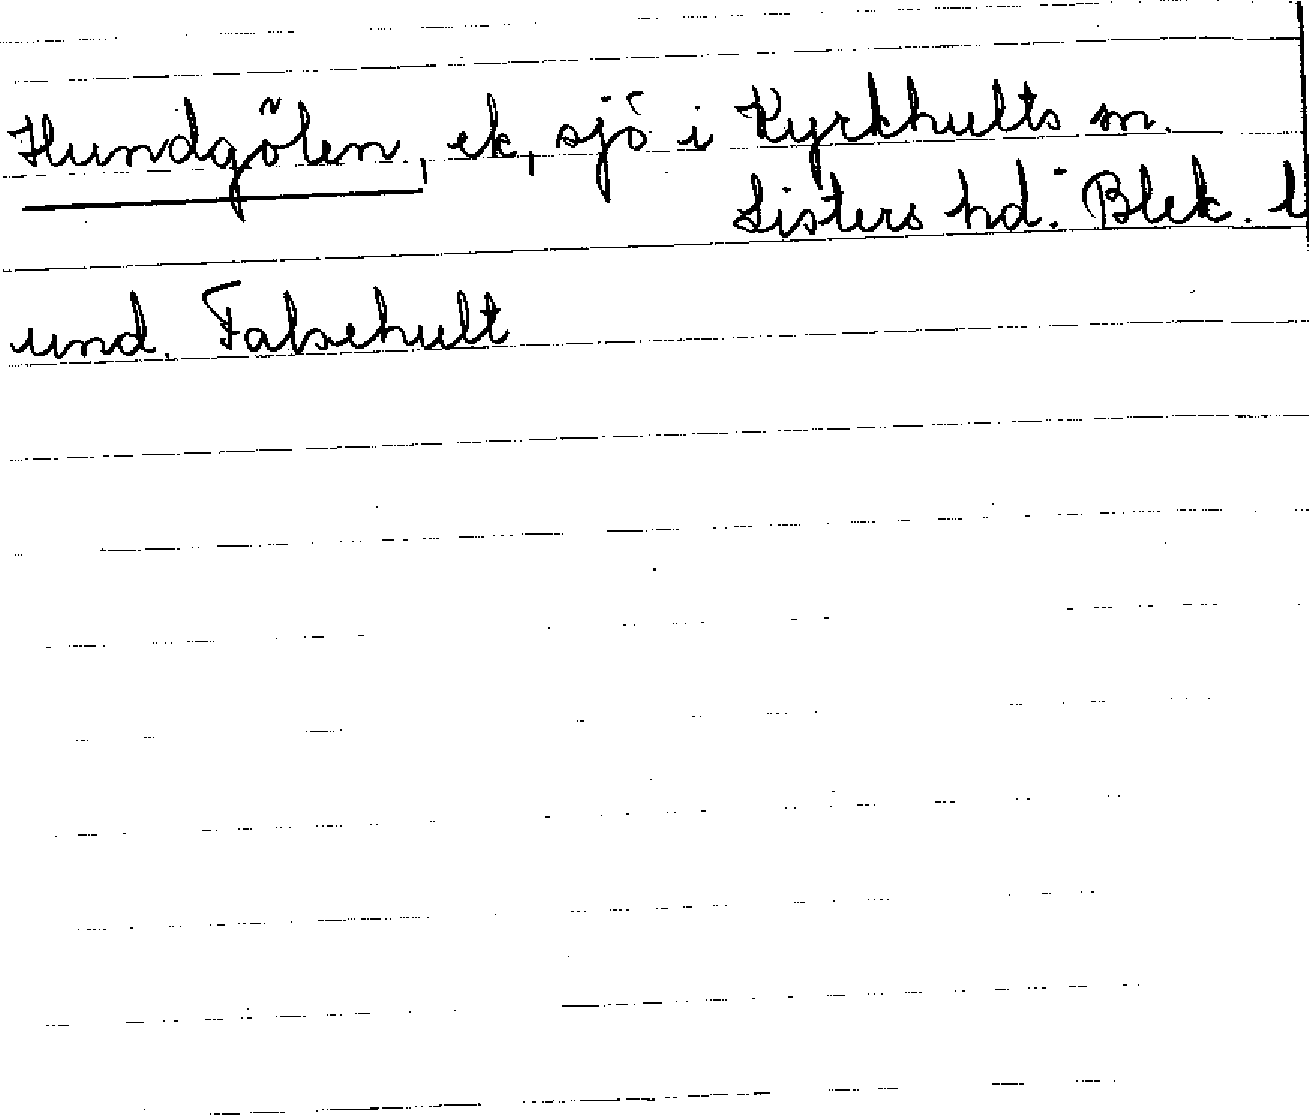 Hundgölen, ek, sjö i Kyrkhults sn.
Listers hd. Blek. l
und. Falsehult